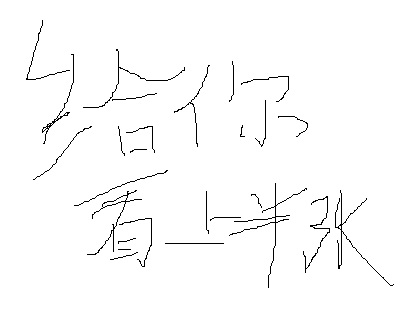 给你
看上半张